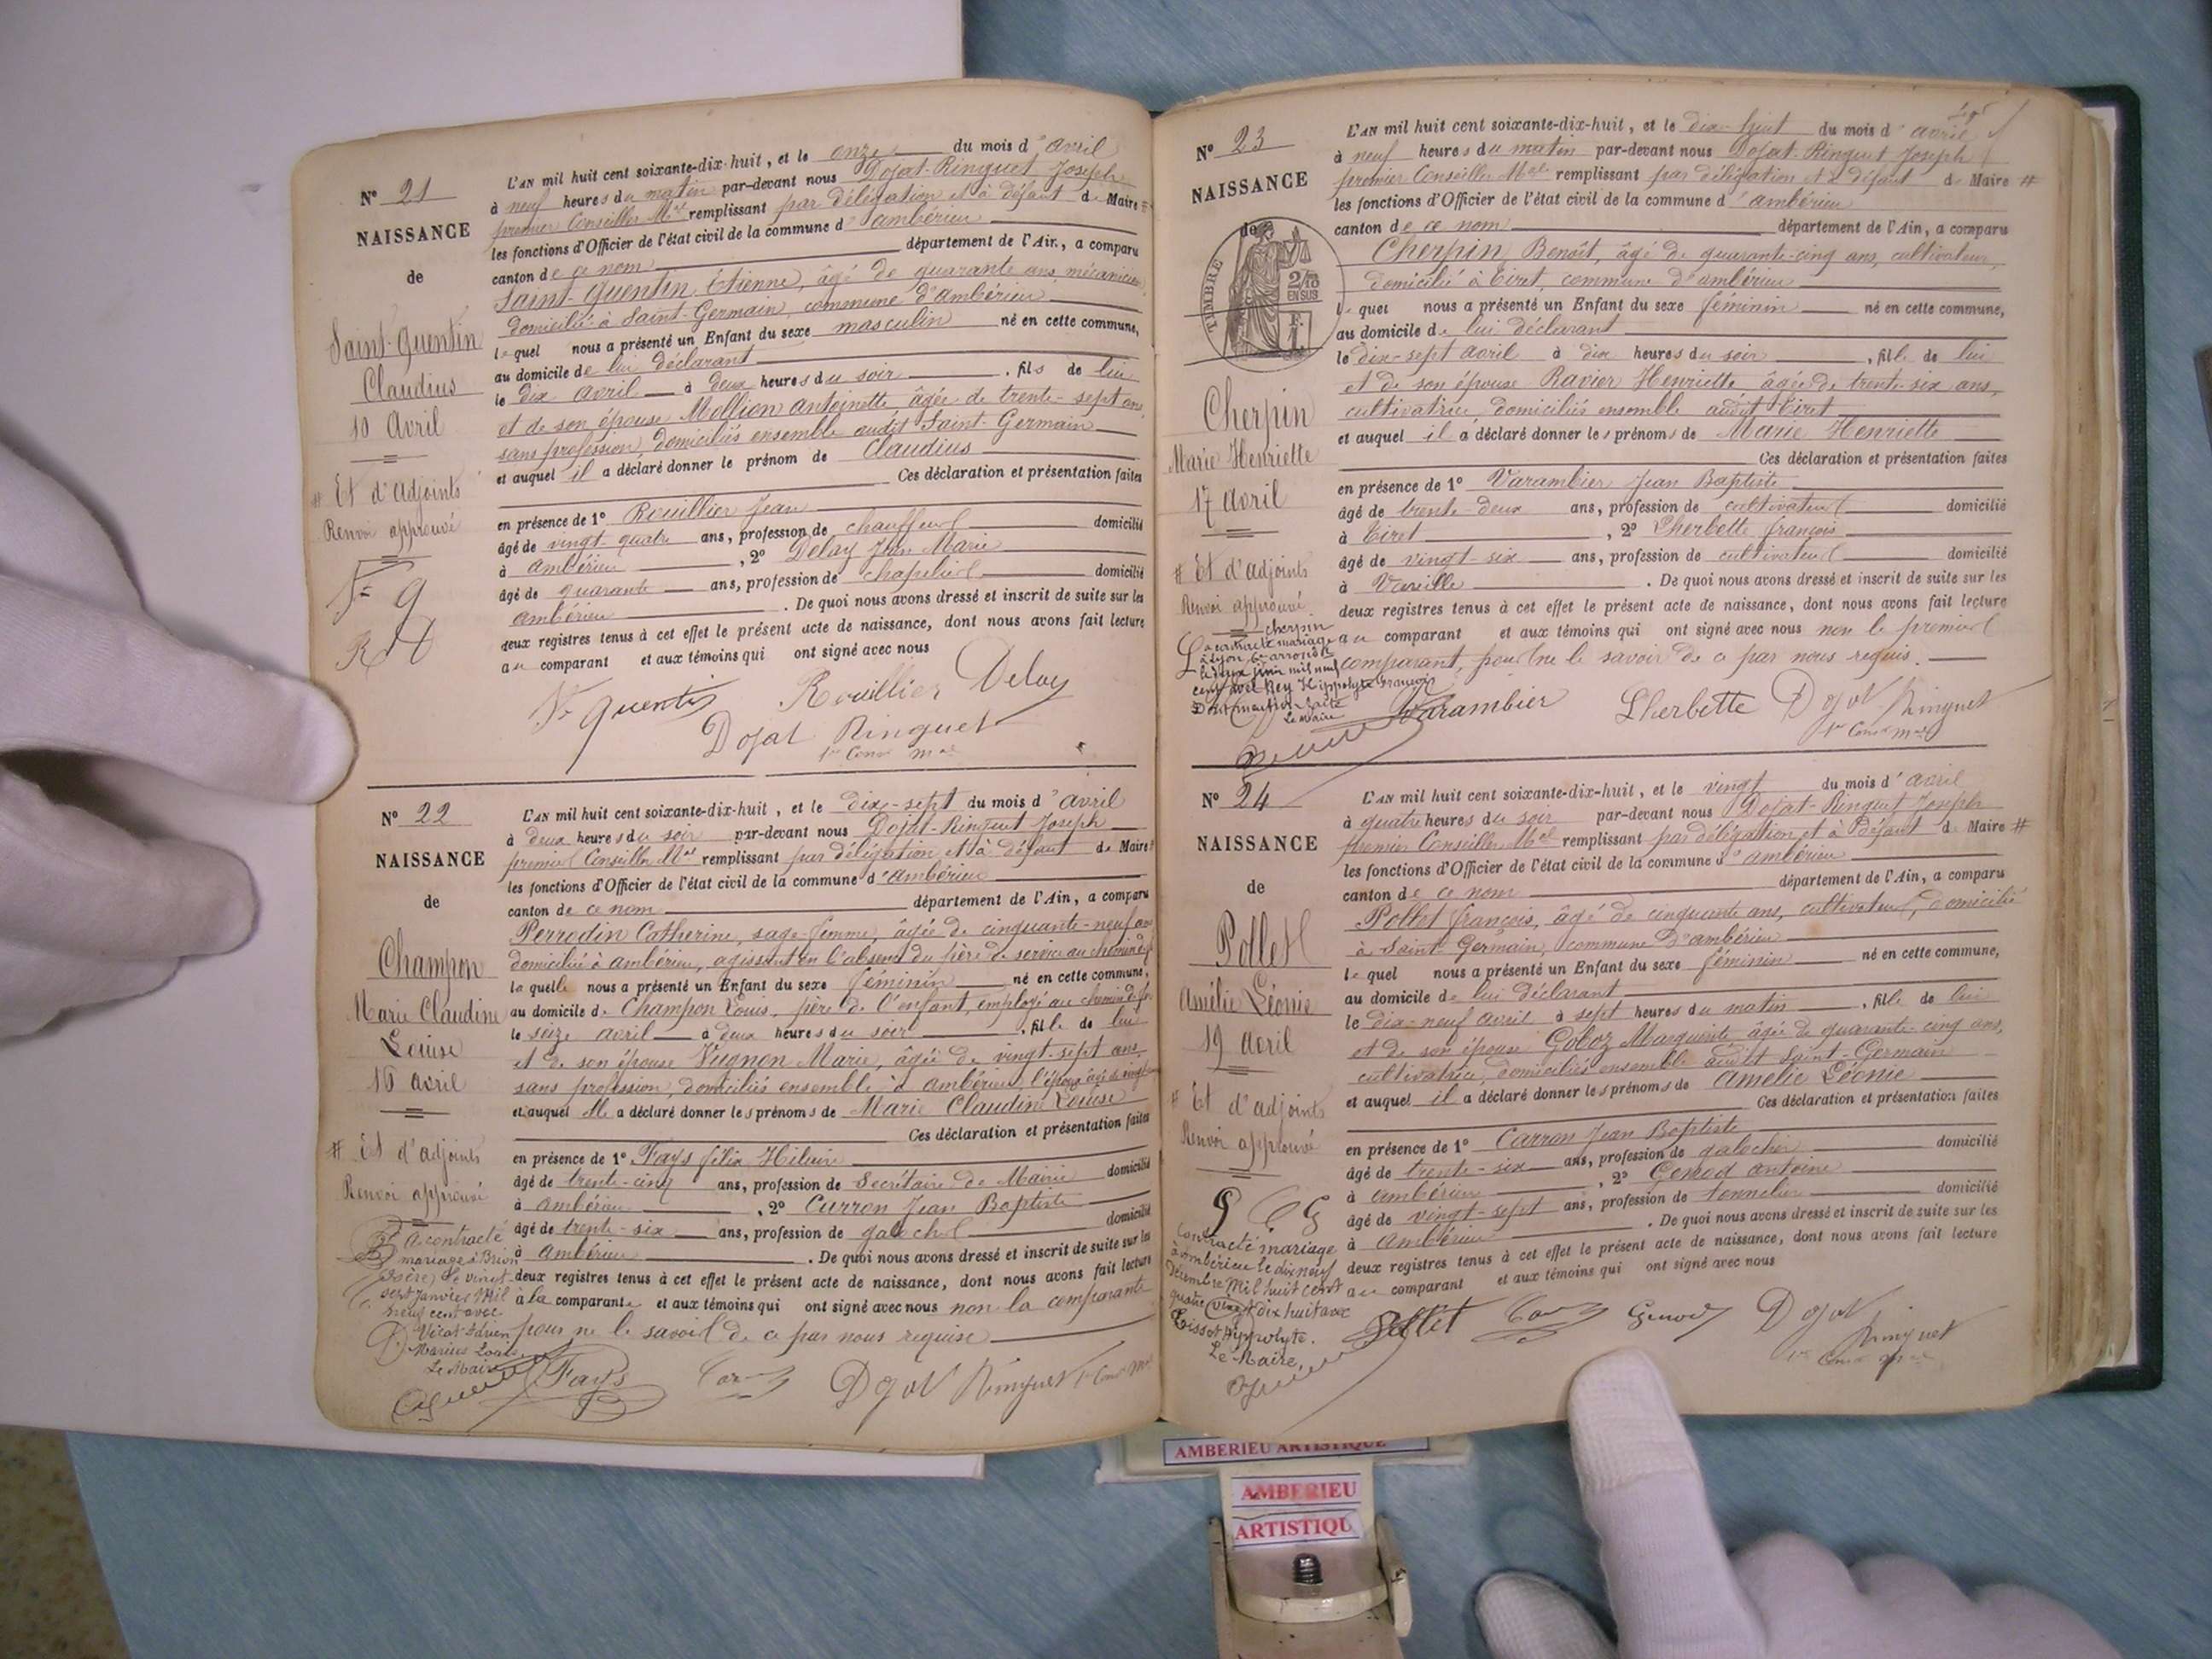 N° 21
NAISSANCE
de
Saint-Quentin
Claudius
10 Avril
# Et d'adjoints
Renvoi approuvé
L'AN mil huit cent soixante-dix-huit, et le onze du mois d'avril
à neuf heures du matin par-devant nous Dojat-Ringuet Joseph
premier Conseiller Mal remplissant par délégation et à défaut de Maire #
les fonctions d'Officier de l'état civil de la commune d'ambérieu
canton de ce nom département de l'Ain, a comparu
Saint-Quentin Etienne, âgé de quarante ans, mécanicien,
domicilié à Saint-Germain, commune d'Ambérieu
lequel nous a présenté un Enfant du sexe masculin né en cette commune,
au domicile de lui déclarant
le dix avril à deux heures du soir, fils de lui
et de son épouse Mollion Antoinette âgée de trente-sept ans,
sans profession, domiciliés ensemble audit Saint-Germain
et auquel il a déclaré donner le prénom de Claudius
Ces déclaration et présentation faites
en présence de 1° Rouillier Jean
âgé de vingt-quatre ans, profession de chauffeur domicilié
à Ambérieu, 2° Delay Jean Marie
âgé de quarante ans, profession de chapelier domicilié
ambérieu. De quoi nous avons dressé et inscrit de suite sur les
deux registres tenus à cet effet le présent acte de naissance, dont nous avons fait lecture
au comparant et aux témoins qui ont signé avec nous
St Quentin Rouillier Delay
Dojat Ringuet
1er Conser mal
N° 22
NAISSANCE
de
Champon
Marie Claudine
Louise
16 avril
# Et d'adjoints
Renvoi approuvé
A contracté
mariage à Brion
(Isère) le vingt-
sept janvier Mil
neuf cent avec
Vicat Adrien
Marius Louis
Le Maire
L'AN mil huit cent soixante-dix-huit, et le dix-sept du mois d'avril
à deux heures du soir par-devant nous Dojat-Ringuet Joseph
premier Conseiller Mal remplissant par délégation et à défaut de Maire #
les fonctions d'Officier de l'état civil de la commune d'Ambérieu
canton de ce nom département de l'Ain, a comparu
Perrodin Catherine, sage-femme, âgée de cinquante-neuf ans
domiciliée à ambérieu, agissant en l'absence du père de service au chemin de fer
laquelle nous a présenté un Enfant du sexe féminin né en cette commune,
au domicile de Champon Louis, père de l'enfant, employé au chemin de fer
le seize avril à deux heures du soir, fille de lui
et de son épouse Marie, âgée de vingt-sept ans,
sans profession, domiciliés ensemble à ambérieu, l'époux âgé de
et auquel elle a déclaré donner les prénoms de Marie Claudine Louise
Ces déclaration et présentation faites
en présence de 1° Fays félix Hilaire
âgé de trente-cinq ans, profession de Secrétaire de Mairie domicilié
à ambérieu, 2° Carron Jean Baptiste
âgé de trente-six ans, profession de galocher domicilié
à Ambérieu. De quoi nous avons dressé et inscrit de suite sur les
deux registres tenus à cet effet le présent acte de naissance, dont nous avons fait lecture
à la comparante et aux témoins qui ont signé avec nous non la comparante
pour ne le savoir de ce par nous requise
Fays Dojat Ringuet 1er Conser Mal
N° 23
NAISSANCE
de
TIMBRE
2/10
EN SUS
Cherpin
Marie Henriette
17 avril
# Et d'adjoints
Renvoi approuvé
Cherpin
a contracté mariage
à Lyon, 6e arrondt
le deux juin mil neuf
cent avec Rey Hippolyte François
Dont mention faite
Le Maire
L'AN mil huit cent soixante-dix-huit, et le dix-huit du mois d'avril
à neuf heures du matin par-devant nous Dojat-Ringuet Joseph
premier Conseiller Mal remplissant par délégation et à défaut de Maire #
les fonctions d'Officier de l'état civil de la commune d'ambérieu
canton de ce nom département de l'Ain, a comparu
Cherpin Benoît, âgé de quarante-cinq ans, cultivateur,
domicilié à Tiret, commune d'ambérieu
lequel nous a présenté un Enfant du sexe féminin né en cette commune,
au domicile de lui déclarant
le dix-sept avril à dix heures du soir, fille de lui
et de son épouse Ravier Henriette âgée de trente-six ans,
cultivatrice, domiciliés ensemble audit Tiret
et auquel il a déclaré donner les prénoms de Marie Henriette
Ces déclaration et présentation faites
en présence de 1° Varambier Jean Baptiste
âgé de trente-deux ans, profession de cultivateur domicilié
à Tiret, 2° Lherbette françois
âgé de vingt-six ans, profession de cultivateur domicilié
à Vareille. De quoi nous avons dressé et inscrit de suite sur les
deux registres tenus à cet effet le présent acte de naissance, dont nous avons fait lecture
au comparant et aux témoins qui ont signé avec nous non le premier
comparant, pour ne le savoir de ce par nous requis.
Varambier Lherbette Dojat Ringuet
1er Conser mal
N° 24
NAISSANCE
de
Pollet
Amélie Léonie
19 avril
# Et d'adjoints
Renvoi approuvé
Contracté mariage
à ambérieu le dix neuf
décembre Mil huit cent
quatre vingt dix huit avec
Tissot Hippolyte.
Le Maire,
L'AN mil huit cent soixante-dix-huit, et le vingt du mois d'avril
à quatre heures du soir par-devant nous Dojat-Ringuet Joseph
premier Conseiller Mal remplissant par délégation et à défaut de Maire #
les fonctions d'Officier de l'état civil de la commune d'ambérieu
canton de ce nom département de l'Ain, a comparu
Pollet françois, âgé de cinquante ans, cultivateur, domicilié
à Saint-Germain, commune d'ambérieu
lequel nous a présenté un Enfant du sexe féminin né en cette commune,
au domicile de lui déclarant
le dix-neuf avril à sept heures du matin, fille de lui
et de son épouse Goboz Marguerite âgée de quarante-cinq ans,
cultivatrice, domiciliés ensemble audit Saint-Germain
et auquel il a déclaré donner les prénoms de Amélie Léonie
Ces déclaration et présentation faites
en présence de 1° Carron Jean Baptiste
âgé de trente-six ans, profession de galocher domicilié
à ambérieu, 2° Genod antoine
âgé de vingt-sept ans, profession de tonnelier domicilié
à Ambérieu. De quoi nous avons dressé et inscrit de suite sur les
deux registres tenus à cet effet le présent acte de naissance, dont nous avons fait lecture
au comparant et aux témoins qui ont signé avec nous
Pollet Genod Dojat
Ringuet
1er Conser mal
AMBERIEU ARTISTIQUE
AMBERIEU
ARTISTIQU